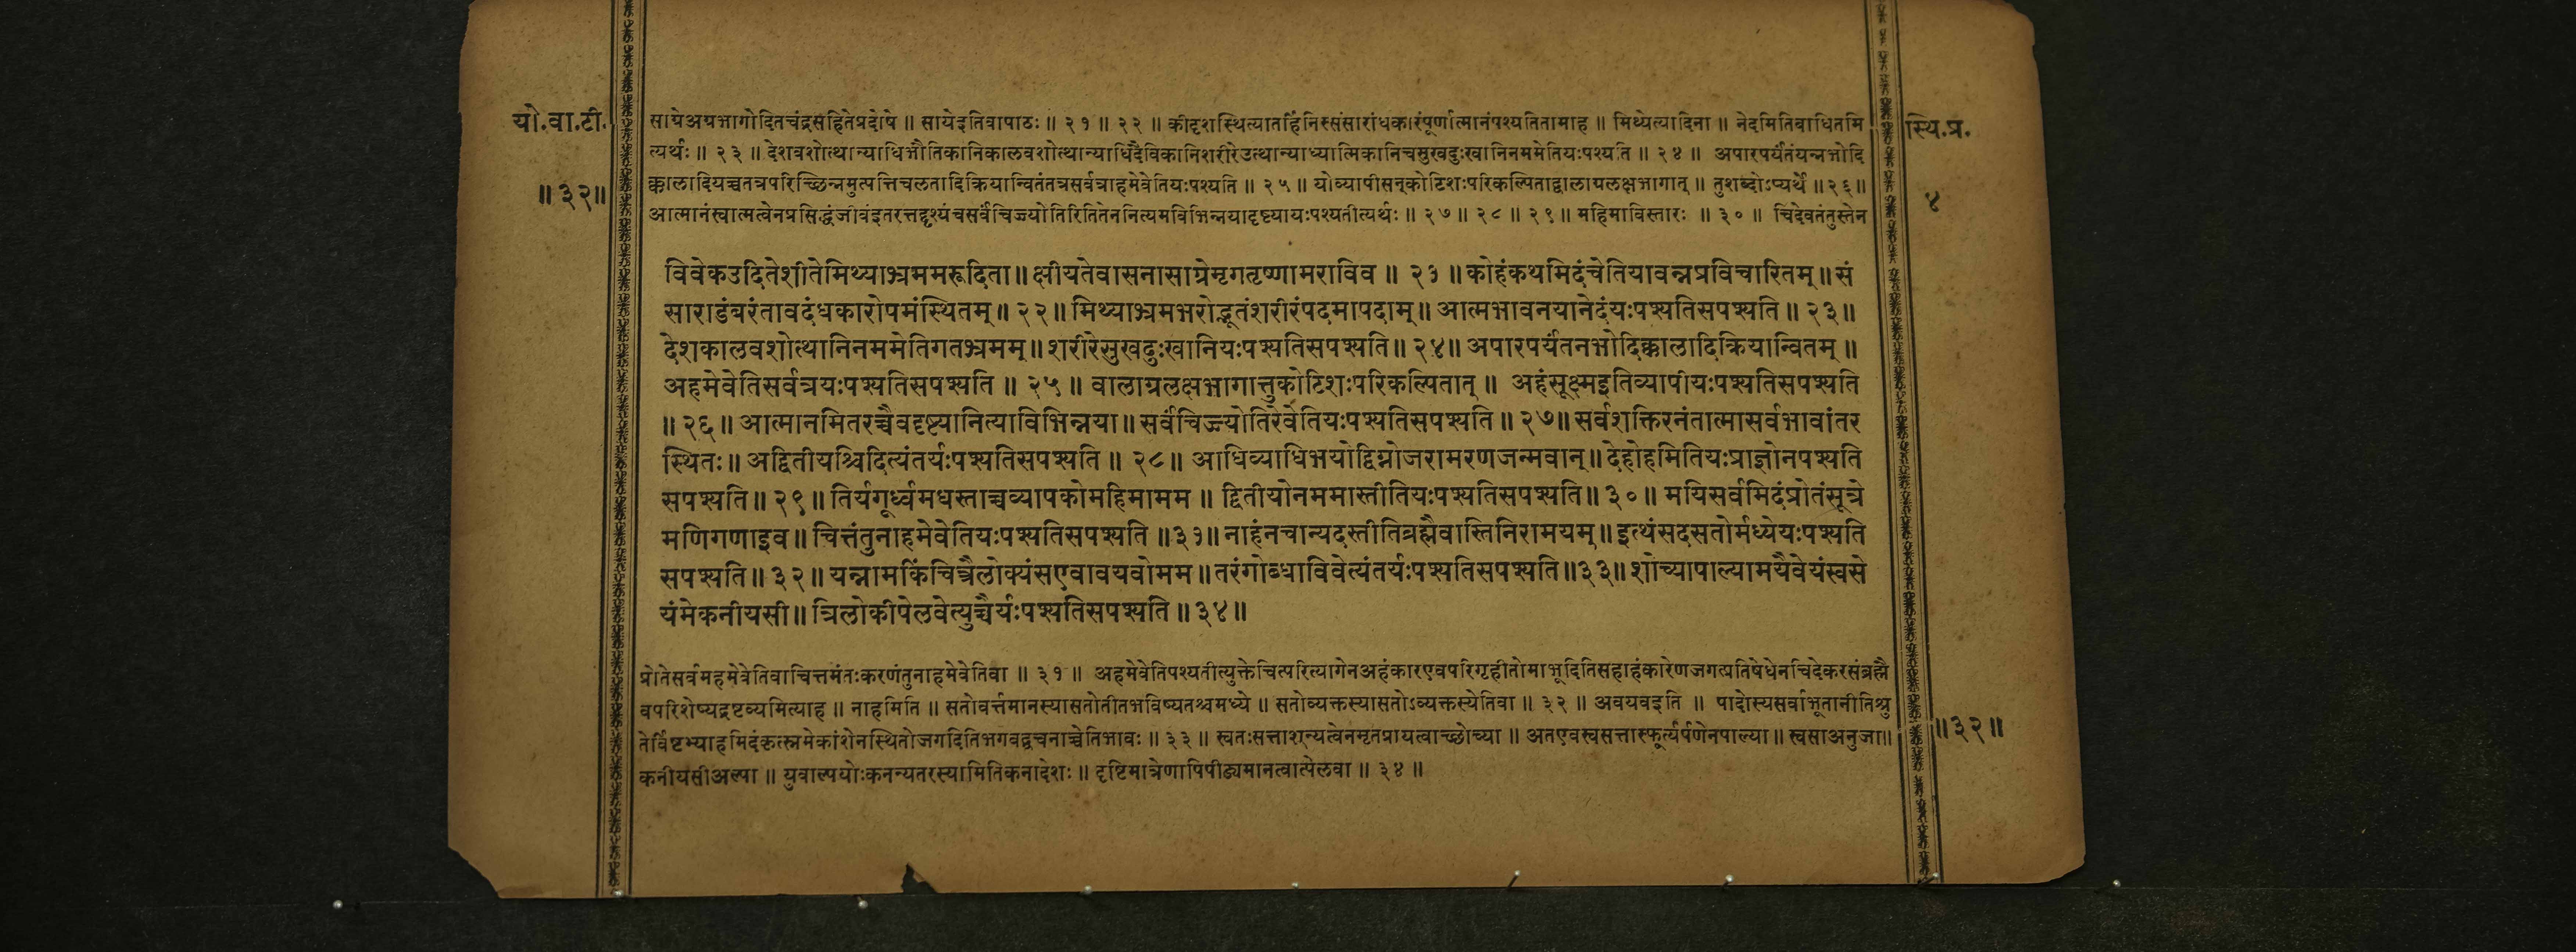 यो.वा.टी.
॥ ३२॥
स्थि.प्र.
४
सायेअयभागोदितचंद्रसहितेप्रदोषे ॥ सायेइतिवापाठः ॥ २१ ॥ २२ ॥ कीदृशस्थित्यातर्हिनिस्संसारांधकारंपूर्णात्मानंपश्यतितामाह ॥ मिथ्येत्यादिना ॥ नेदमितिबाधितमि
त्यर्थः ॥ २३ ॥ देशवशोत्थान्याधिभौतिकानिकालवशोत्थान्याधिदैविकानिशरीरेउत्थान्याध्यात्मिकानिचसुखदुःखानिनममेतियःपश्यति ॥ २४ ॥ अपारपर्यंतंयन्नभोदि
क्कालादियच्चतत्रपरिच्छिन्नमुत्पत्तिचलतादिक्रियान्वितंतत्रसर्वत्राहमेवेतियःपश्यति ॥ २५ ॥ योव्यापीसन्कोटिशःपरिकल्पिताद्वालाग्रलक्षभागात् ॥ तुशब्दोऽप्यर्थे ॥ २६॥
आत्मानंस्वात्मत्वेनप्रसिद्धंजीवंइतरत्तदृश्यंचसर्वंचिज्ज्योतिरितितेननित्यमविभिन्नयादृष्ट्यायःपश्यतीत्यर्थः ॥ २७ ॥ २८ ॥ २९ ॥ महिमाविस्तारः ॥ ३० ॥ चिदेवतंतुस्तेन
विवेकउदितेशीतेमिथ्याभ्रममरूदिता॥ क्षीयतेवासनासाग्रेमृगतृष्णामराविव ॥ २१ ॥ कोहंकथमिदंचेतियावन्नप्रविचारितम्॥ सं
साराडंबरंतावदंधकारोपमंस्थितम्॥ २२॥ मिथ्याभ्रमभरोद्भूतंशरीरंपदमापदाम्॥ आत्मभावनयानेदंयःपश्यतिसपश्यति॥ २३॥
देशकालवशोत्थानिनममेतिगतभ्रमम्॥ शरीरेसुखदुःखानियःपश्यतिसपश्यति॥ २४॥ अपारपर्यंतनभोदिक्कालादिक्रियान्वितम्॥
अहमेवेतिसर्वत्रयःपश्यतिसपश्यति ॥ २५ ॥ वालाग्रलक्षभागात्तुकोटिशःपरिकल्पितात् ॥ अहंसूक्ष्मइतिव्यापीयःपश्यतिसपश्यति
॥ २६॥ आत्मानमितरच्चैवदृष्ट्यानित्याविभिन्नया॥ सर्वंचिज्ज्योतिरेवेतियःपश्यतिसपश्यति॥ २७॥ सर्वशक्तिरनंतात्मासर्वभावांतर
स्थितः॥ अद्वितीयश्चिदित्यंतर्यःपश्यतिसपश्यति ॥ २८॥ आधिव्याधिभयोद्विग्नोजरामरणजन्मवान्॥ देहोहमितियःप्राज्ञोनपश्यति
सपश्यति॥ २९॥ तिर्यगूर्ध्वमधस्ताच्चव्यापकोमहिमामम ॥ द्वितीयोनममास्तीतियःपश्यतिसपश्यति॥ ३०॥ मयिसर्वमिदंप्रोतंसूत्रे
मणिगणाइव॥ चित्तंतुनाहमेवेतियःपश्यतिसपश्यति ॥३१॥ नाहंनचान्यदस्तीतिब्रह्मैवास्तिनिरामयम्॥ इत्थंसदसतोर्मध्येयःपश्यति
सपश्यति॥ ३२॥ यन्नामकिंचित्रैलोक्यंसएवावयवोमम॥ तरंगोब्धाविवेत्यंतर्यःपश्यतिसपश्यति॥३३॥ शोच्यापाल्यामयैवेयंस्वसे
यंमेकनीयसी॥ त्रिलोकीपेलवेत्युच्चैर्यःपश्यतिसपश्यति ॥ ३४॥
प्रोतेसर्वमहमेवेतिवाचित्तमंतःकरणंतुनाहमेवेतिवा ॥ ३१ ॥ अहमेवेतिपश्यतीत्युक्तेचित्परित्यागेनअहंकारएवपरिगृहीतोमाभूदितिसहाहंकारेणजगत्प्रतिषेधेनचिदेकरसंब्रह्मै
वपरिशेष्यद्रष्टव्यमित्याह ॥ नाहमिति ॥ सतोवर्त्तमानस्यासतोतीतभविष्यतश्चमध्ये ॥ सतोव्यक्तस्यासतोऽव्यक्तस्येतिवा ॥ ३२ ॥ अवयवइति ॥ पादोस्यसर्वाभूतानीतिश्रु
तेर्विष्टभ्याहमिदंकृत्स्नमेकांशेनस्थितोजगदितिभगवद्वचनाच्चेतिभावः ॥ ३३ ॥ स्वतःसत्ताशून्यत्वेनमृतप्रायत्वाच्छोच्या ॥ अतएवस्वसत्तास्फूर्त्यर्पणेनपाल्या ॥ स्वसाअनुजा॥
कनीयसीअल्पा ॥ युवाल्पयोःकनन्यतरस्यामितिकनादेशः ॥ दृष्टिमात्रेणापिपीड्यमानत्वात्पेलवा ॥ ३४ ॥
॥३२॥